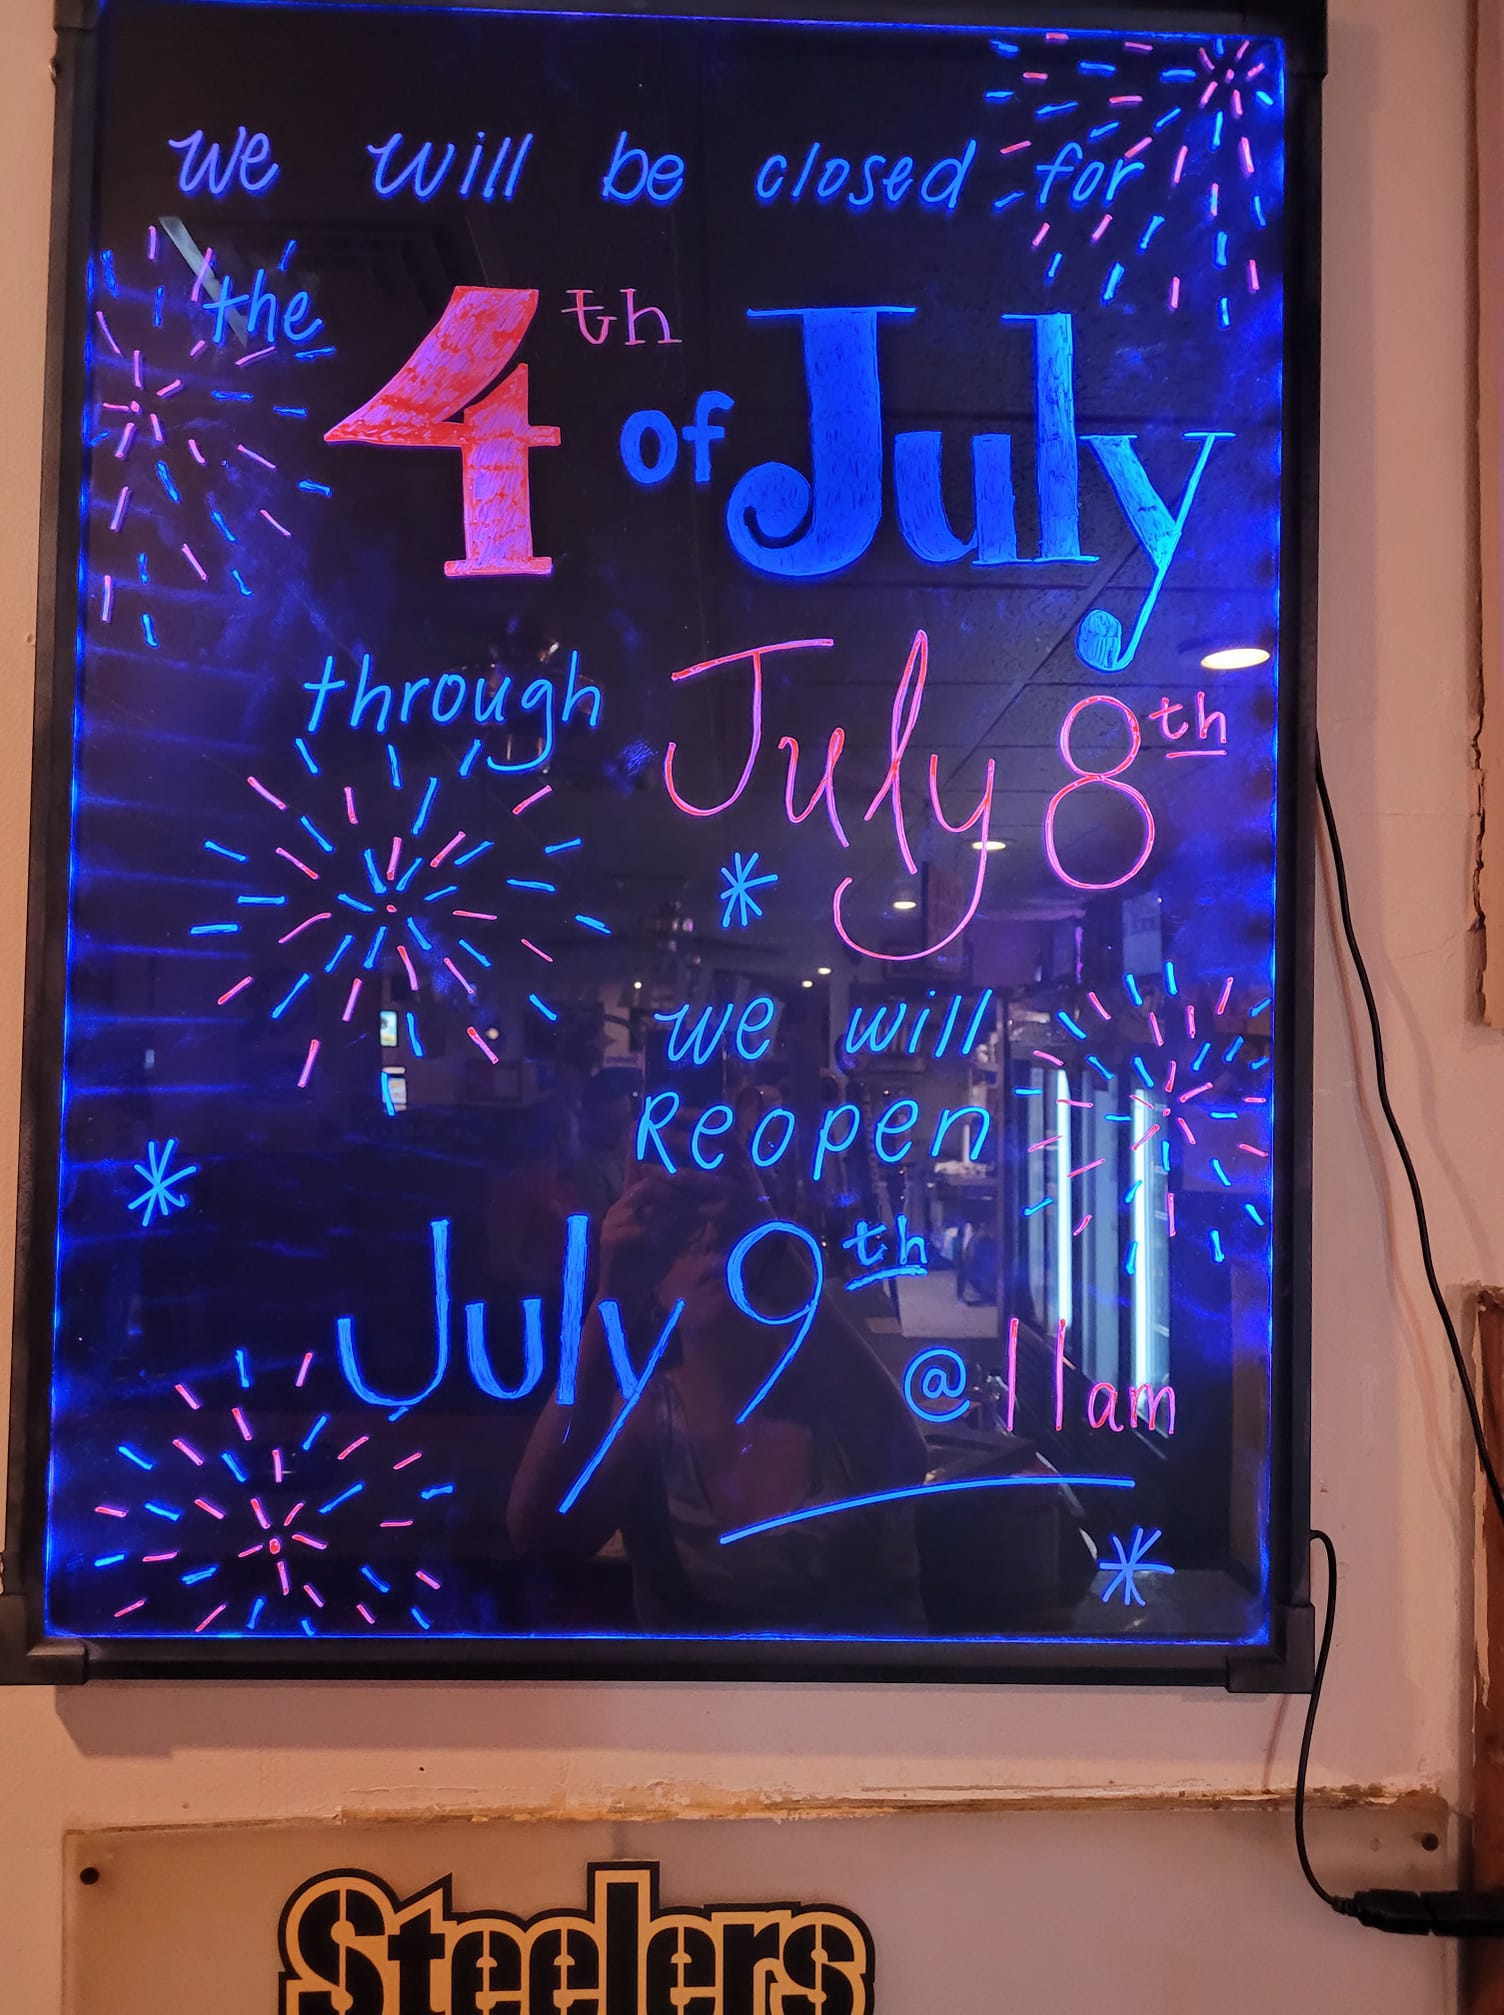 we will be closed for
the 4th of July
through July 8th
we will
Reopen
July 9th @ 11am
Steelers